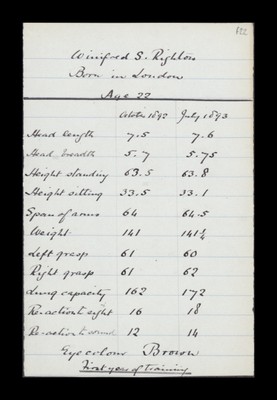 122
Winifred S. Righton
Born in London
Age 22
October 1892 July 1893
Head length 7.5 7.6
Head breadth 5.7 5.75
Height standing 63.5 63.8
Height sitting 33.5 33.1
Span of arms 64 64.5
Weight 141 141¼
Left grasp 61 60
Right grasp 61 62
Lung capacity 162 172
Re-action to sight 16 18
Re-action to sound 12 14
Eye colour Brown
First year of training